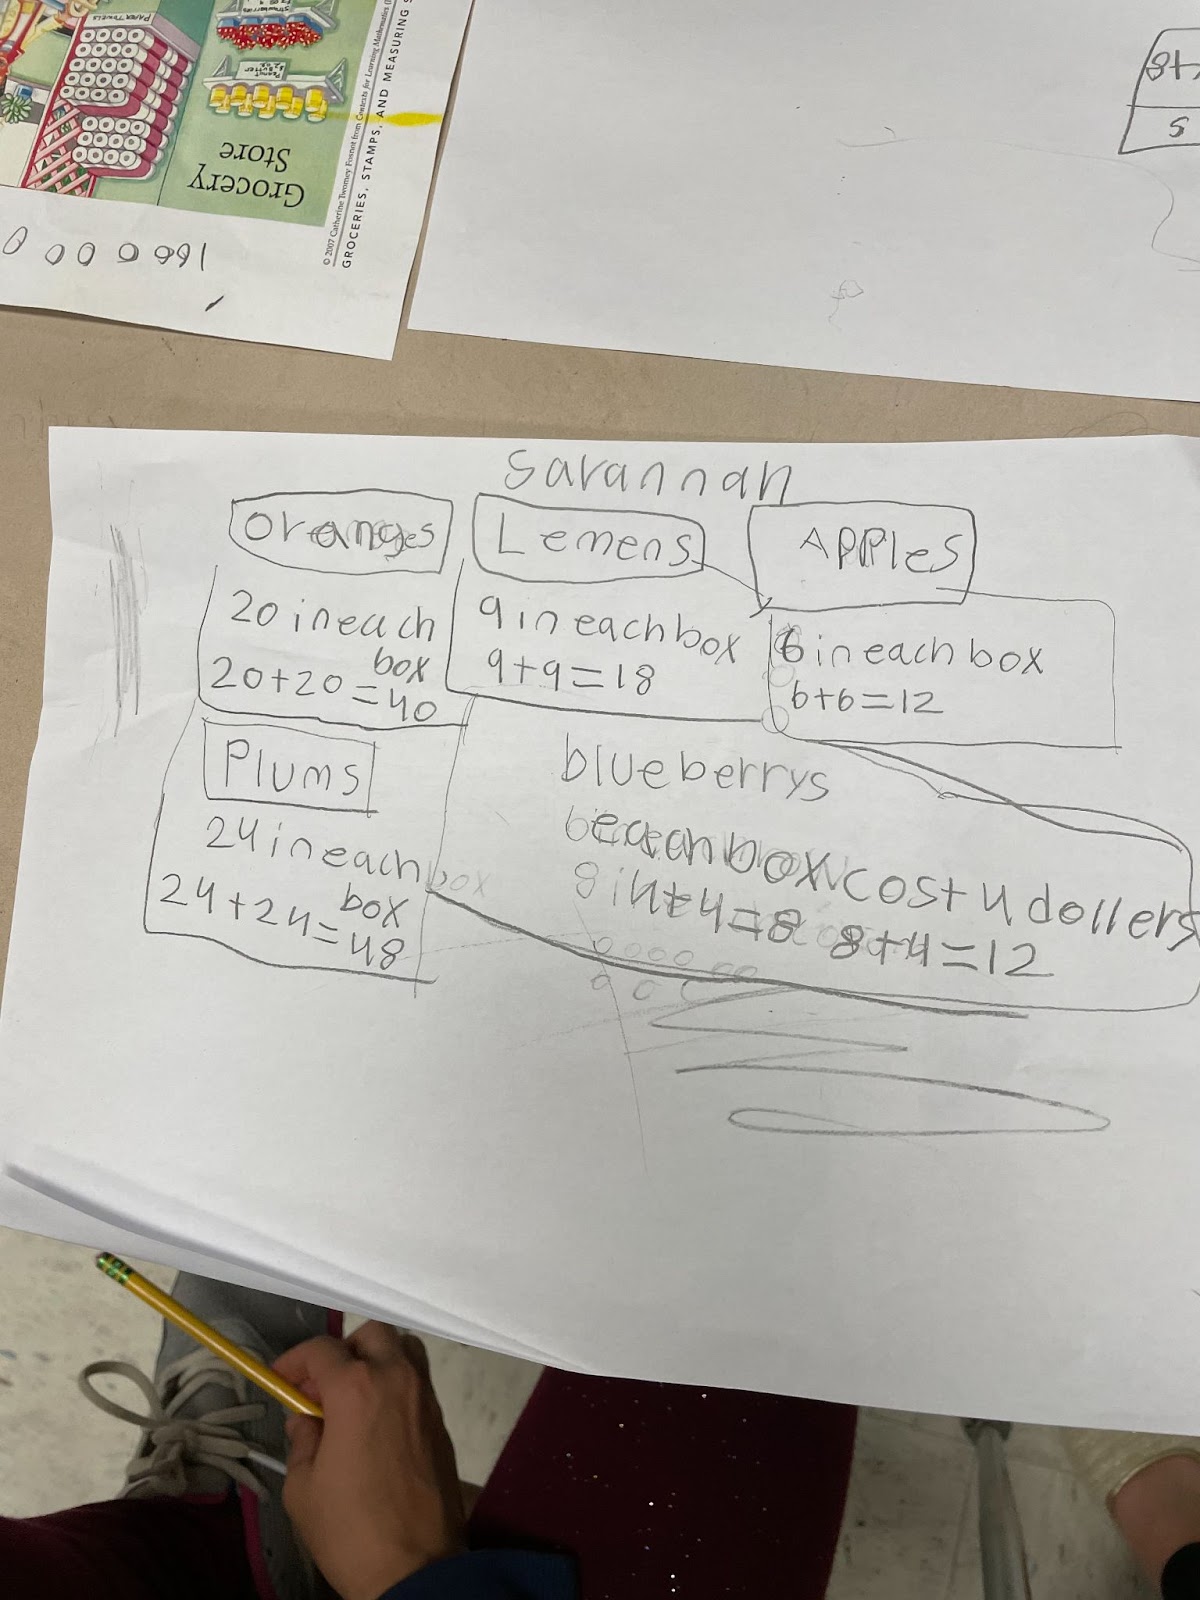 PAPER TOWELS
Strawberries
PEANUT
BUTTER
Grocery
Store
© 2007 Catherine Twomey Fosnot from Contexts for Learning Mathematics
GROCERIES, STAMPS, AND MEASURING
savannah
oranges
Lemens
APPles
20 in each
box
20+20=40
9 in each box
9+9=18
6 in each box
6+6=12
Plums
24 in each
box
24+24=48
blueberrys
each box cost 4 dollers
4+4=8 8+4=12